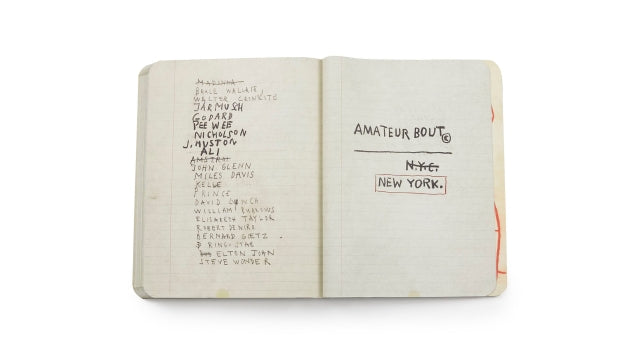 MADONNA
BRUCE WALLACE,
WALTER CRONKITE
JARMUSH
GODARD
PEE WEE
NICHOLSON
J. HUSTON
ALI
JOHN GLENN
MILES DAVIS
KELLE
PRINCE
DAVID LYNCH
WILLIAM BURROUS
ELIZABETH TAYLOR
ROBERT DENIRO
BERNARD GOETZ
RINGO STAR
ELTON JOHN
STEVE WONDER
AMATEUR BOUT©
N.Y.C.
NEW YORK.